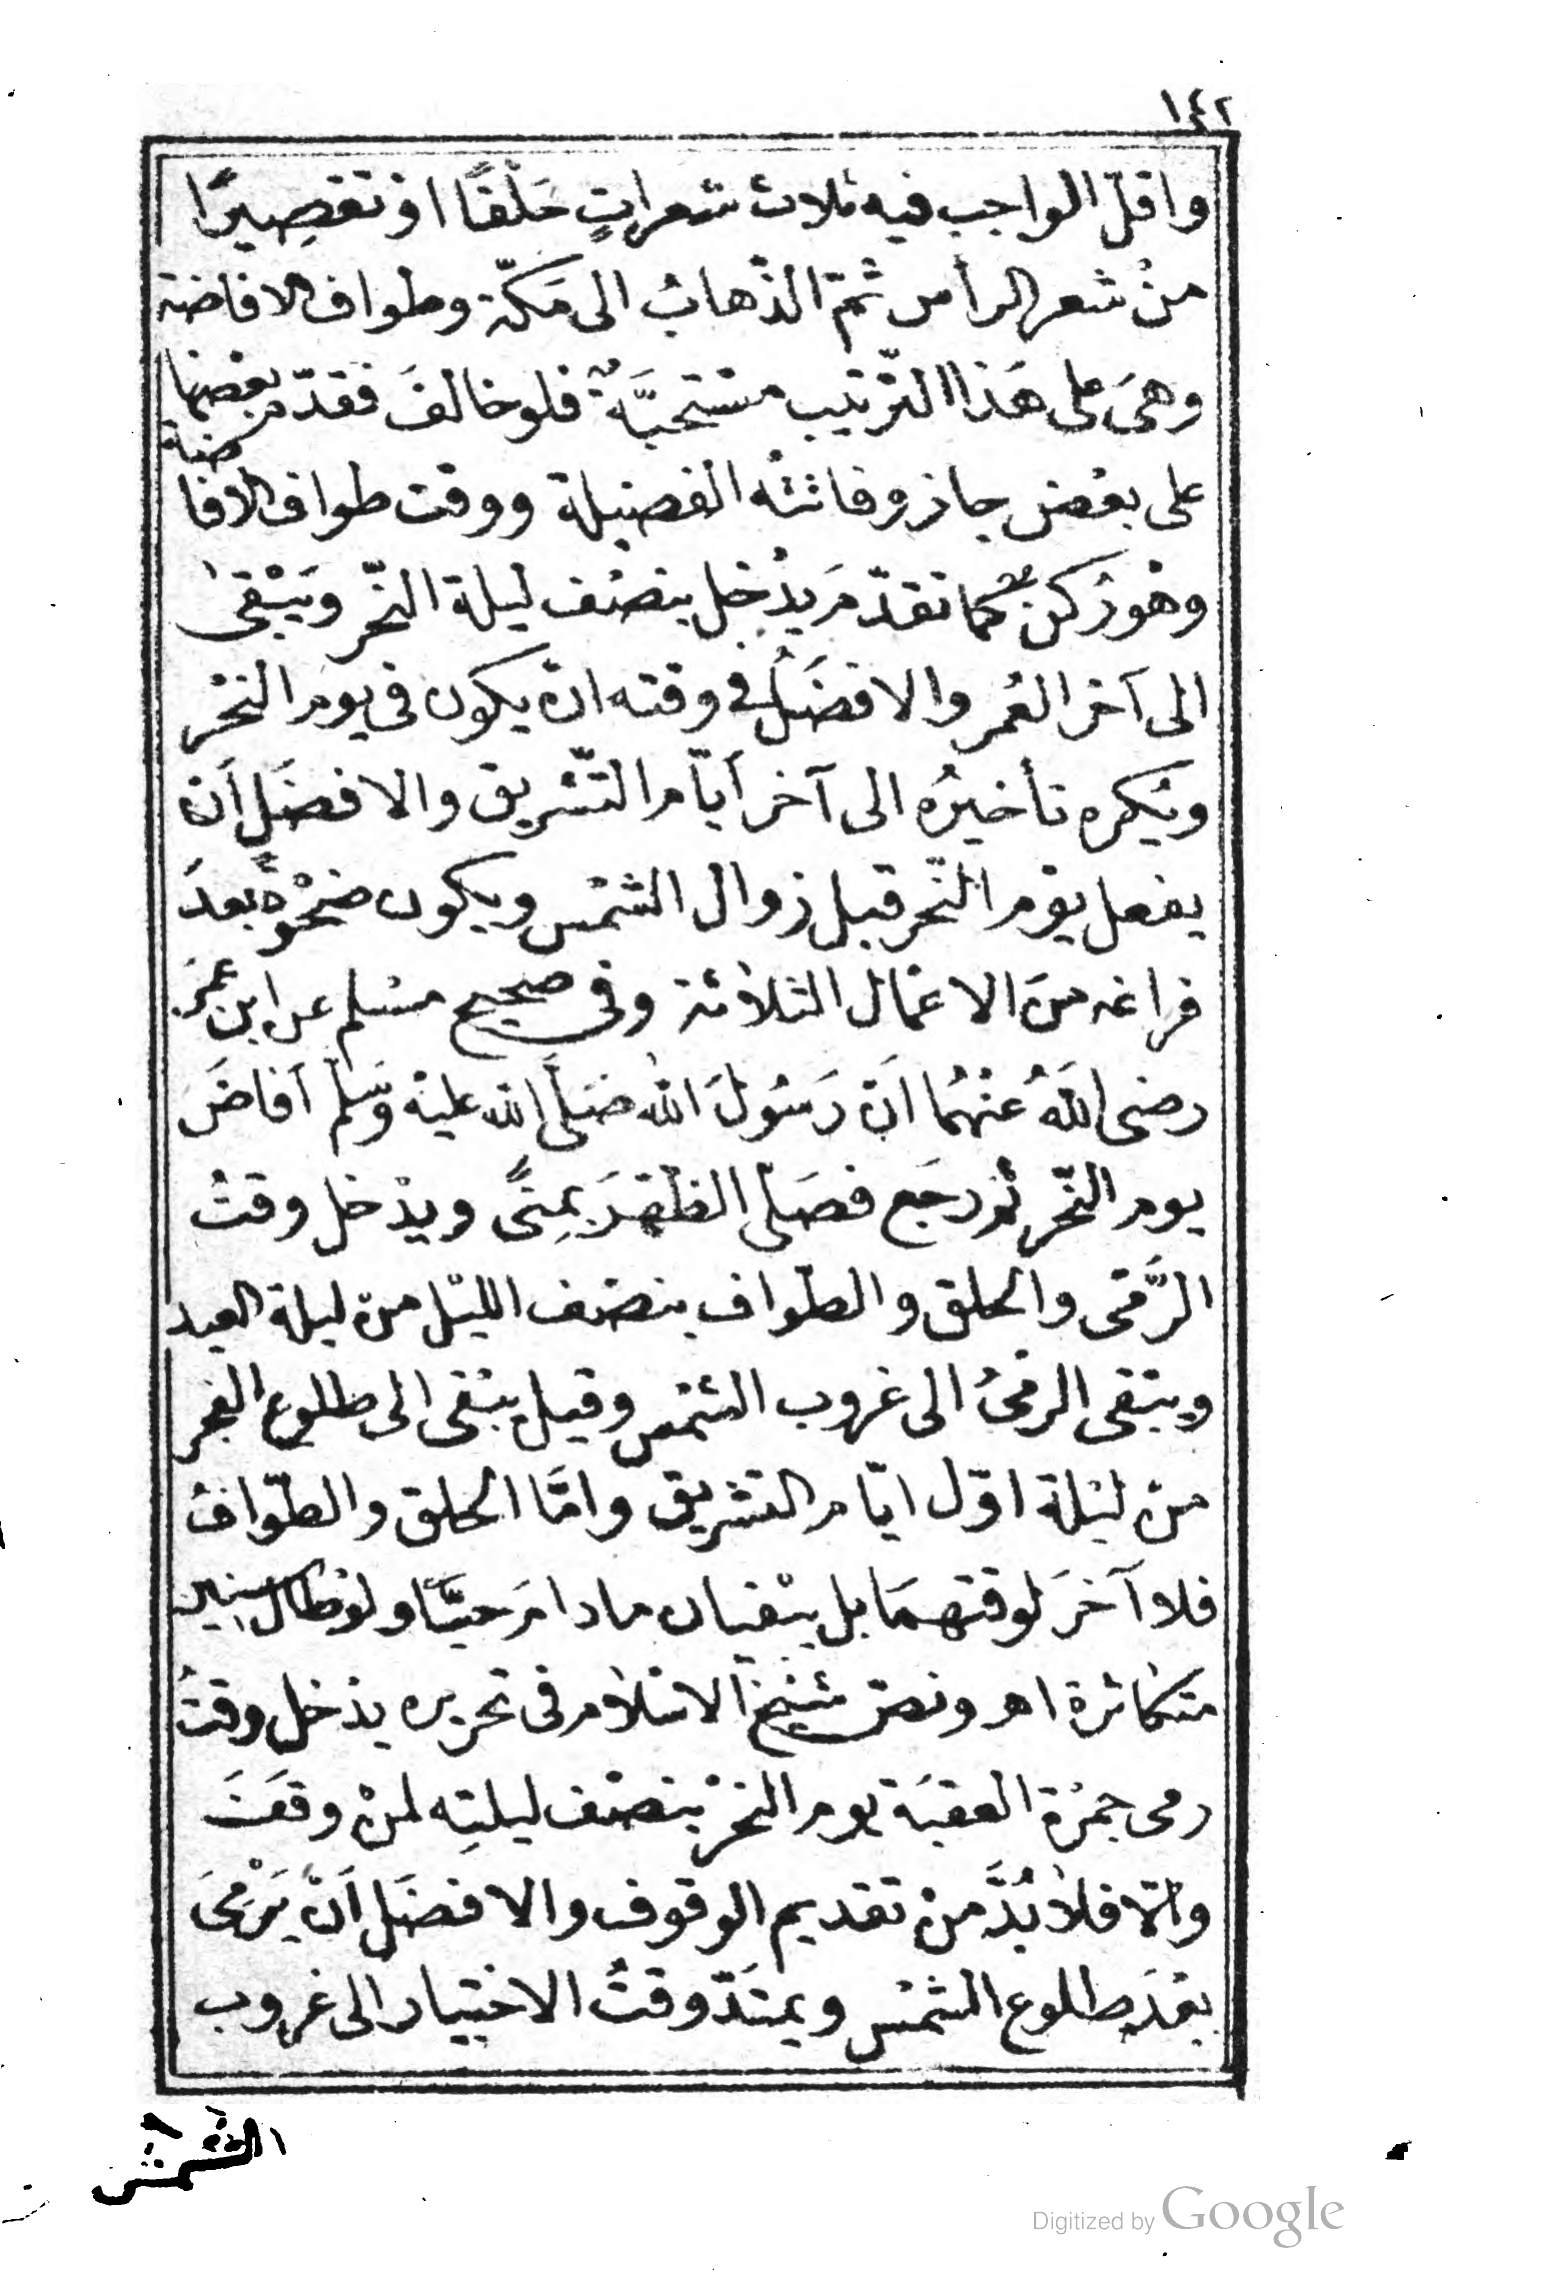 ١٤٢
واقلّ الواجب فيه ثلاث شعراتٍ حَلْقًا اوْ تقصِيرًا
منْ شعر الرأس ثمّ الذّهابُ الى مَكّة وطواف الافاضة
وهىَ على هَذا التّرتيب مسْتحبَّةٌ فلو خالفَ فقدّم بعْضها
على بعْض جاز وفاتتْه الفضيلة ووقت طواف الافاضة
وهُو رُكنٌ كما تقدّمَ يدْخل بنصْف ليلة النّحر ويَبْقى
الى آخر العُمر والافضَلُ فى وقته انْ يكون فى يوم النحْر
ويُكره تأخيرُه الى آخر أيّام التّشريق والافضَل أَنْ
يفعل يوْم النّحر قبل زوال الشمْس ويكون ضحْوةً بعدَ
فراغه منَ الاعْمال الثلاثة وفى صحيح مسْلم عن ابن عمَر
رضى اللهُ عنْهُما اَنّ رَسُولَ الله صَلَّى الله عليْه وَسَلّم أفاضَ
يوم النّحر ثم رجَع فصَلّى الظهْرَ بمِنًى ويدْخل وقتُ
الرَّمْى والحلق والطّواف بنصْف الليْل منْ ليلة العيد
ويبْقى الرمْىُ الى غروب الشمْس وقيل يبْقى الى طلوع الفجر
منْ ليْلة اوّل ايّام التشريق وامَّا الحلق والطّوافُ
فلا آخرَ لوقتهمَا بل يبْقيان مادامَ حيًّا ولوْ طال سنين
متكاثرة اهـ ونصّ شيْخ الاسْلام فى تحريره يدْخل وقتُ
رمى جمْرَة العقبَة يوم النحْر بنصْف ليلتِه لمنْ وقَفَ
والّا فلا بُدَّ منْ تقديم الوقوف والافضَل اَنْ يَرْمىَ
بعْدَ طلوع الشمْس ويمتَدّ وقتُ الاختيار الى غروب
الشّمْس
Digitized by Google